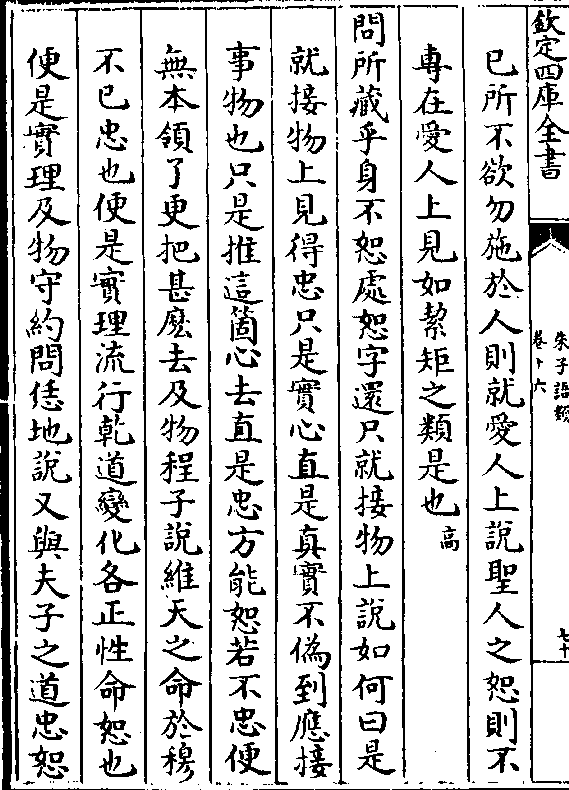 欽定四庫全書
朱子語類
卷十六
七十
已所不欲勿施於人則就愛人上說聖人之恕則不
專在愛人上見如絜矩之類是也高
問所藏乎身不恕處恕字還只就接物上說如何曰是
就接物上見得忠只是實心直是真實不偽到應接
事物也只是推這箇心去直是忠方能恕若不忠便
無本領了更把甚麽去及物程子說維天之命於穆
不已忠也便是實理流行乾道變化各正性命恕也
便是實理及物守約問恁地說又與夫子之道忠恕